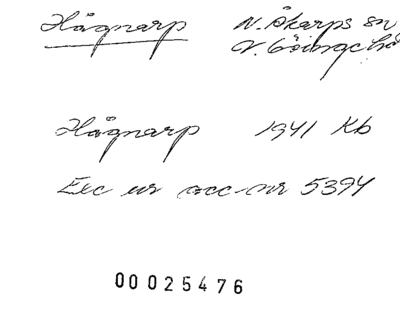 Hågnarp N. Åkarps sn
V. Göinge hd
Hågnarp 1941 Kb
Exc ur acc-nr 5394
00025476